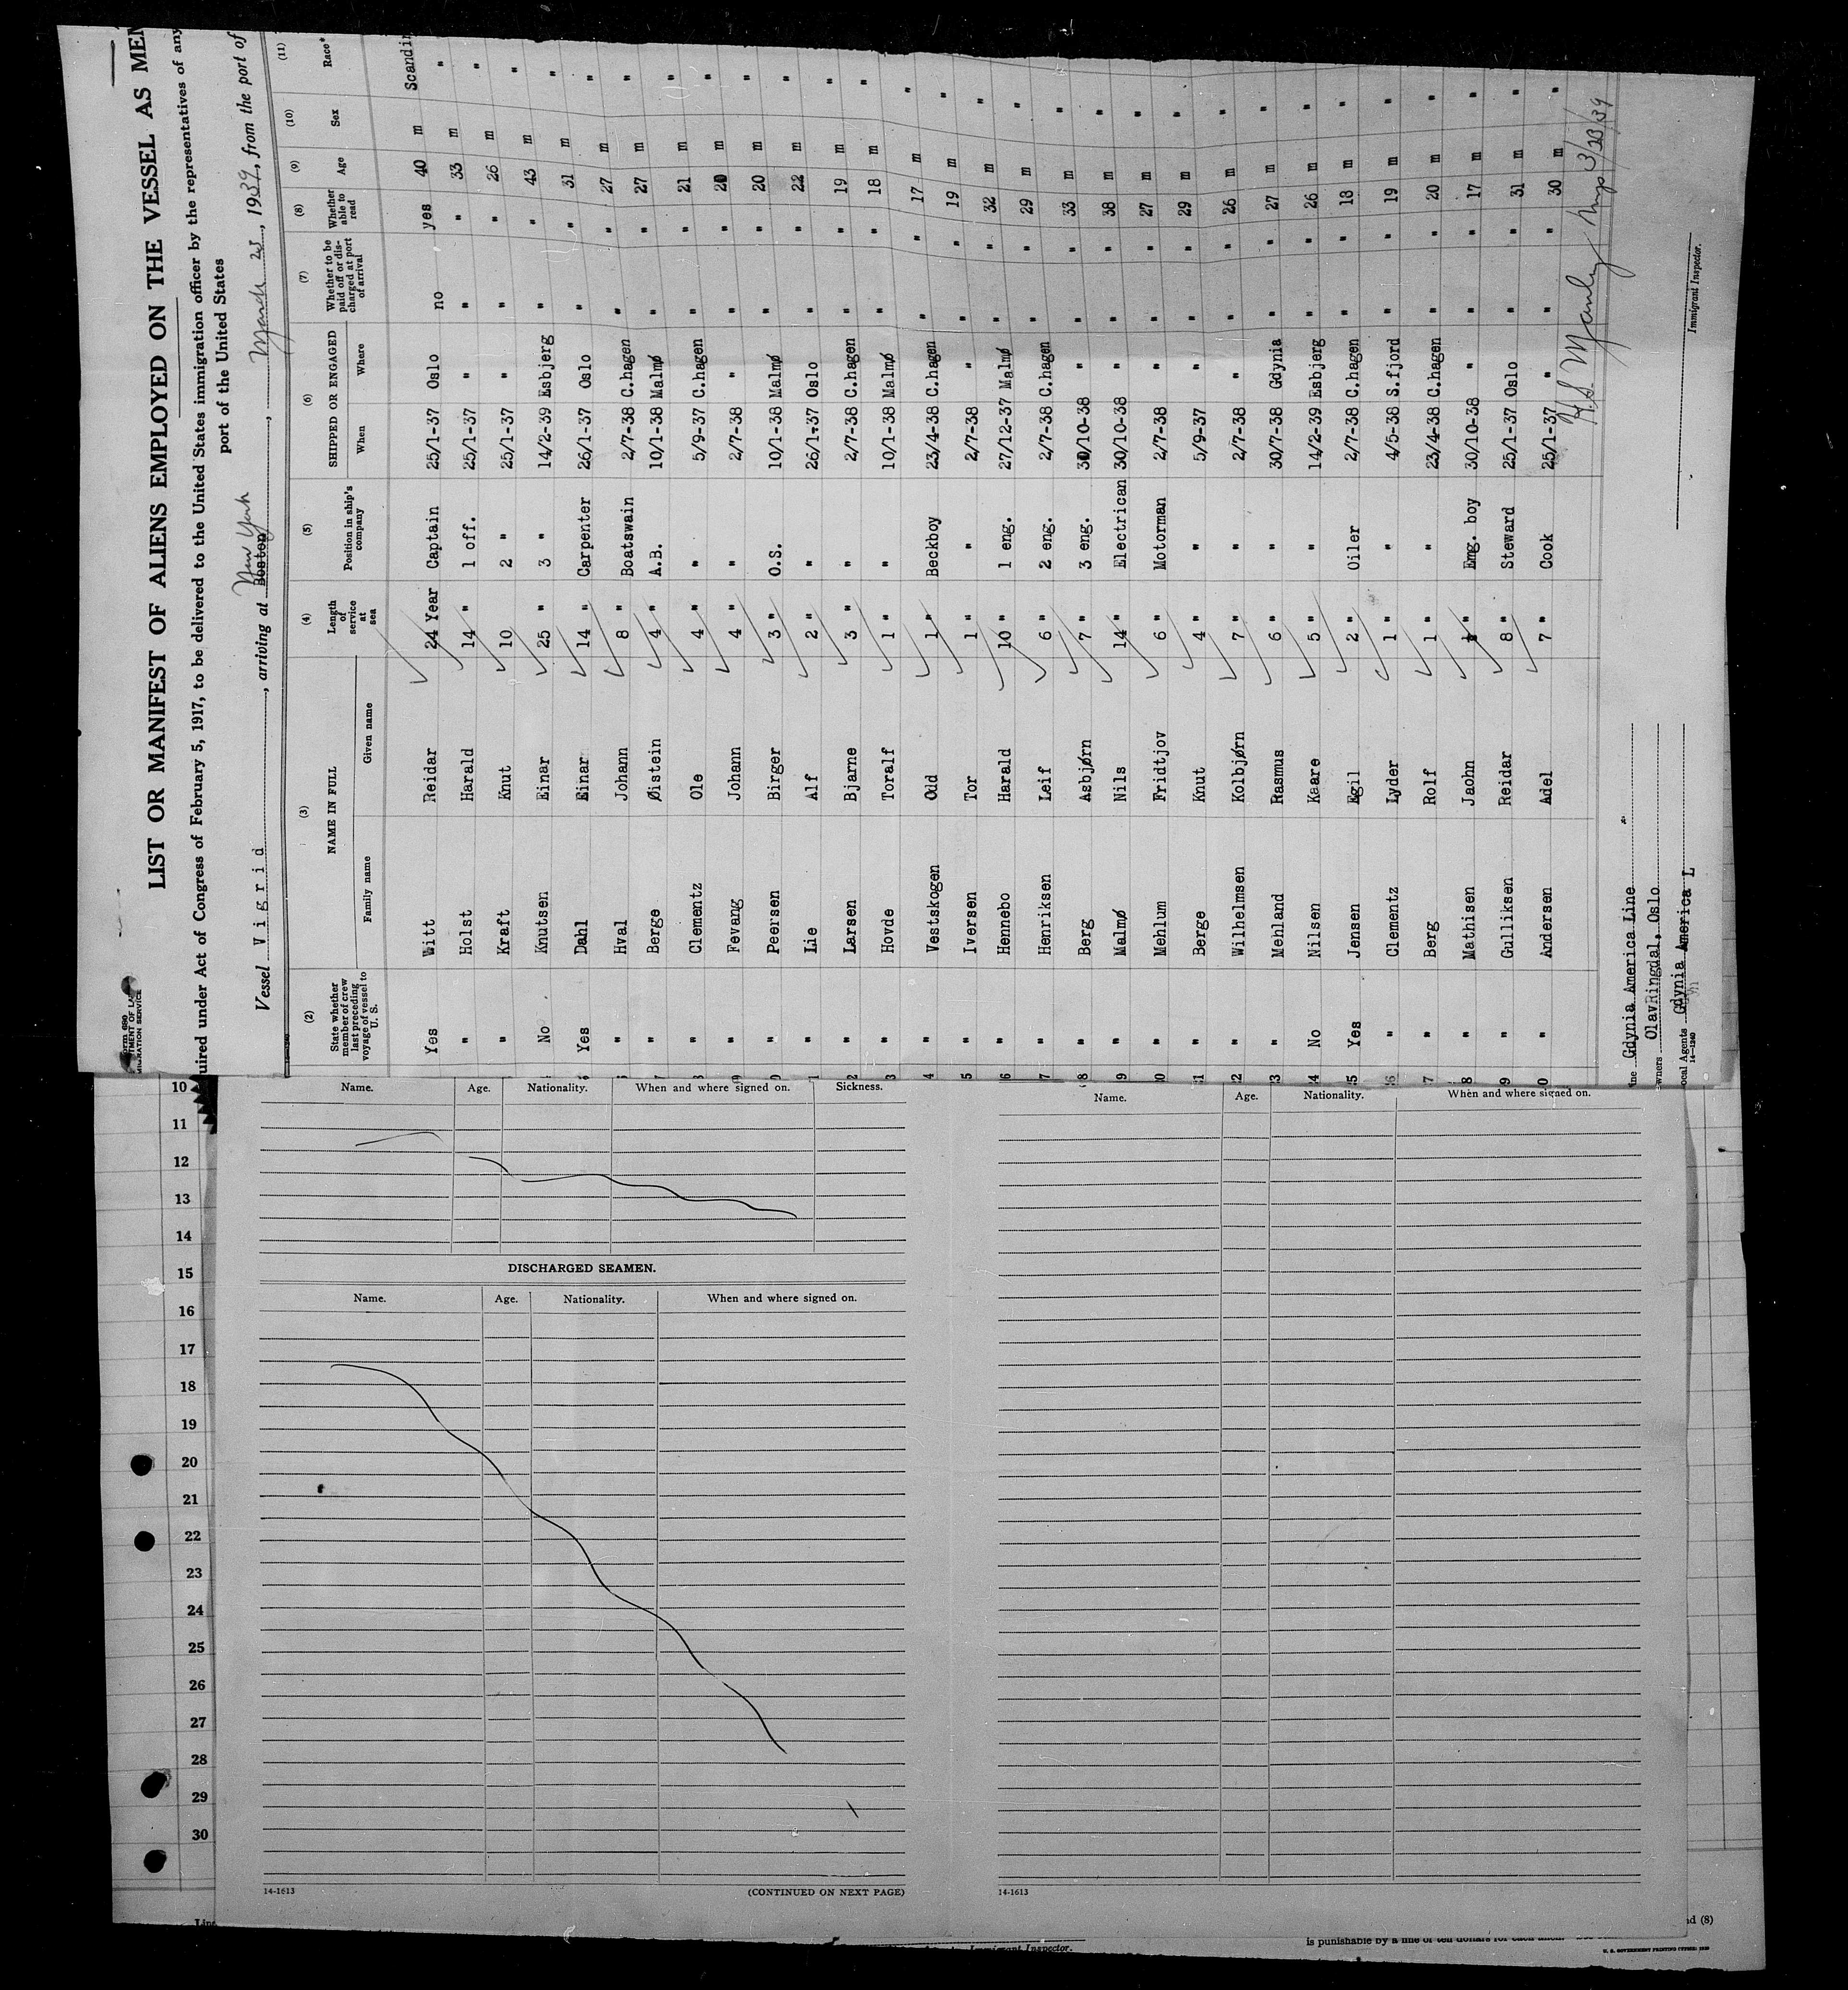 Form 680
LIST OR MANIFEST OF ALIENS EMPLOYED ON THE VESSEL AS MEM
uired under Act of Congress of February 5, 1917, to be delivered to the United States immigration officer by the representatives of any
port of the United States
Vessel Vigrid, arriving at Boston New York, March 23, 1939, from the port of
(2) (3) (4) (5) (6) (7) (8) (9) (10) (11)
State whether member of crew last preceding voyage of vessel to U. S. NAME IN FULL Length of service at sea Position in ship's company SHIPPED OR ENGAGED Whether to be paid off or discharged at port of arrival Whether able to read Age Sex Race*
Family name Given name When Where
Yes Witt Reidar 24 Year Captain 25/1-37 Oslo no yes 40 m Scandin
" Holst Harald 14 " 1 off. 25/1-37 " " " 33 m "
" Kraft Knut 10 " 2 " 25/1-37 " " " 26 m "
No Knutsen Einar 25 " 3 " 14/2-39 Esbjerg " " 43 m "
Yes Dahl Einar 14 " Carpenter 26/1-37 Oslo " " 31 m "
" Hval Johann 8 " Boatswain 2/7-38 C.hagen " " 27 m "
" Berge Øistein 4 " A.B. 10/1-38 Malmø " " 27 m "
" Clementz Ole 4 " " 5/9-37 C.hagen " " 21 m "
9 " Fevang Johann 4 " " 2/7-38 " " " 20 m "
0 " Peersen Birger 3 " O.S. 10/1-38 Malmø " " 20 m "
1 " Lie Alf 2 " " 26/1-37 Oslo " " 22 m "
2 " Larsen Bjarne 3 " " 2/7-38 C.hagen " " 19 m "
3 " Hovde Toralf 1 " " 10/1-38 Malmø " " 18 m "
4 " Vestskogen Odd 1 " Beckboy 23/4-38 C.hagen " " 17 m "
5 " Iversen Tor 1 " " 2/7-38 " " " 19 m "
6 " Hennebo Harald 10 " 1 eng. 27/12-37 Malmø " " 32 m "
7 " Henriksen Leif 6 " 2 eng. 2/7-38 C.hagen " " 29 m "
8 " Berg Asbjørn 7 " 3 eng. 30/10-38 " " " 33 m "
9 " Malmø Nils 14 " Electrican 30/10-38 " " " 38 m "
0 " Mehlum Fridtjov 6 " Motorman 2/7-38 " " " 27 m "
1 " Berge Knut 4 " " 5/9-37 " " " 29 m "
2 " Wilhelmsen Kolbjørn 7 " " 2/7-38 " " " 26 m "
3 " Mehland Rasmus 6 " " 30/7-38 Gdynia " " 27 m "
4 No Nilsen Kaare 5 " " 14/2-39 Esbjerg " " 26 m "
5 Yes Jensen Egil 2 " Oiler 2/7-38 C.hagen " " 18 m "
6 " Clementz Lyder 1 " " 4/5-38 S.fjord " " 19 m "
7 " Berg Rolf 1 " " 23/4-38 C.hagen " " 20 m "
8 " Mathisen Jaohn " Eng. boy 30/10-38 " " " 17 m "
9 " Gulliksen Reidar 8 " Steward 25/1-37 Oslo " " 31 m "
0 " Andersen Adel 7 " Cook 25/1-37 " " " 30 m "
3/23/39
ine Gdynia America Line
wners OlavRingdal, Oslo
ocal Agents Gdynia America L
14-1240
Immigrant Inspector.
Name. Age. Nationality. When and where signed on. Sickness.
DISCHARGED SEAMEN.
Name. Age. Nationality. When and where signed on.
14-1613 (CONTINUED ON NEXT PAGE)
Name. Age. Nationality. When and where signed on.
14-1613
10
11
12
13
14
15
16
17
18
19
20
21
22
23
24
25
26
27
28
29
30
Immigrant Inspector.
is punishable by a fine of ten dollars for each alien.
nd (8)
U. S. GOVERNMENT PRINTING OFFICE